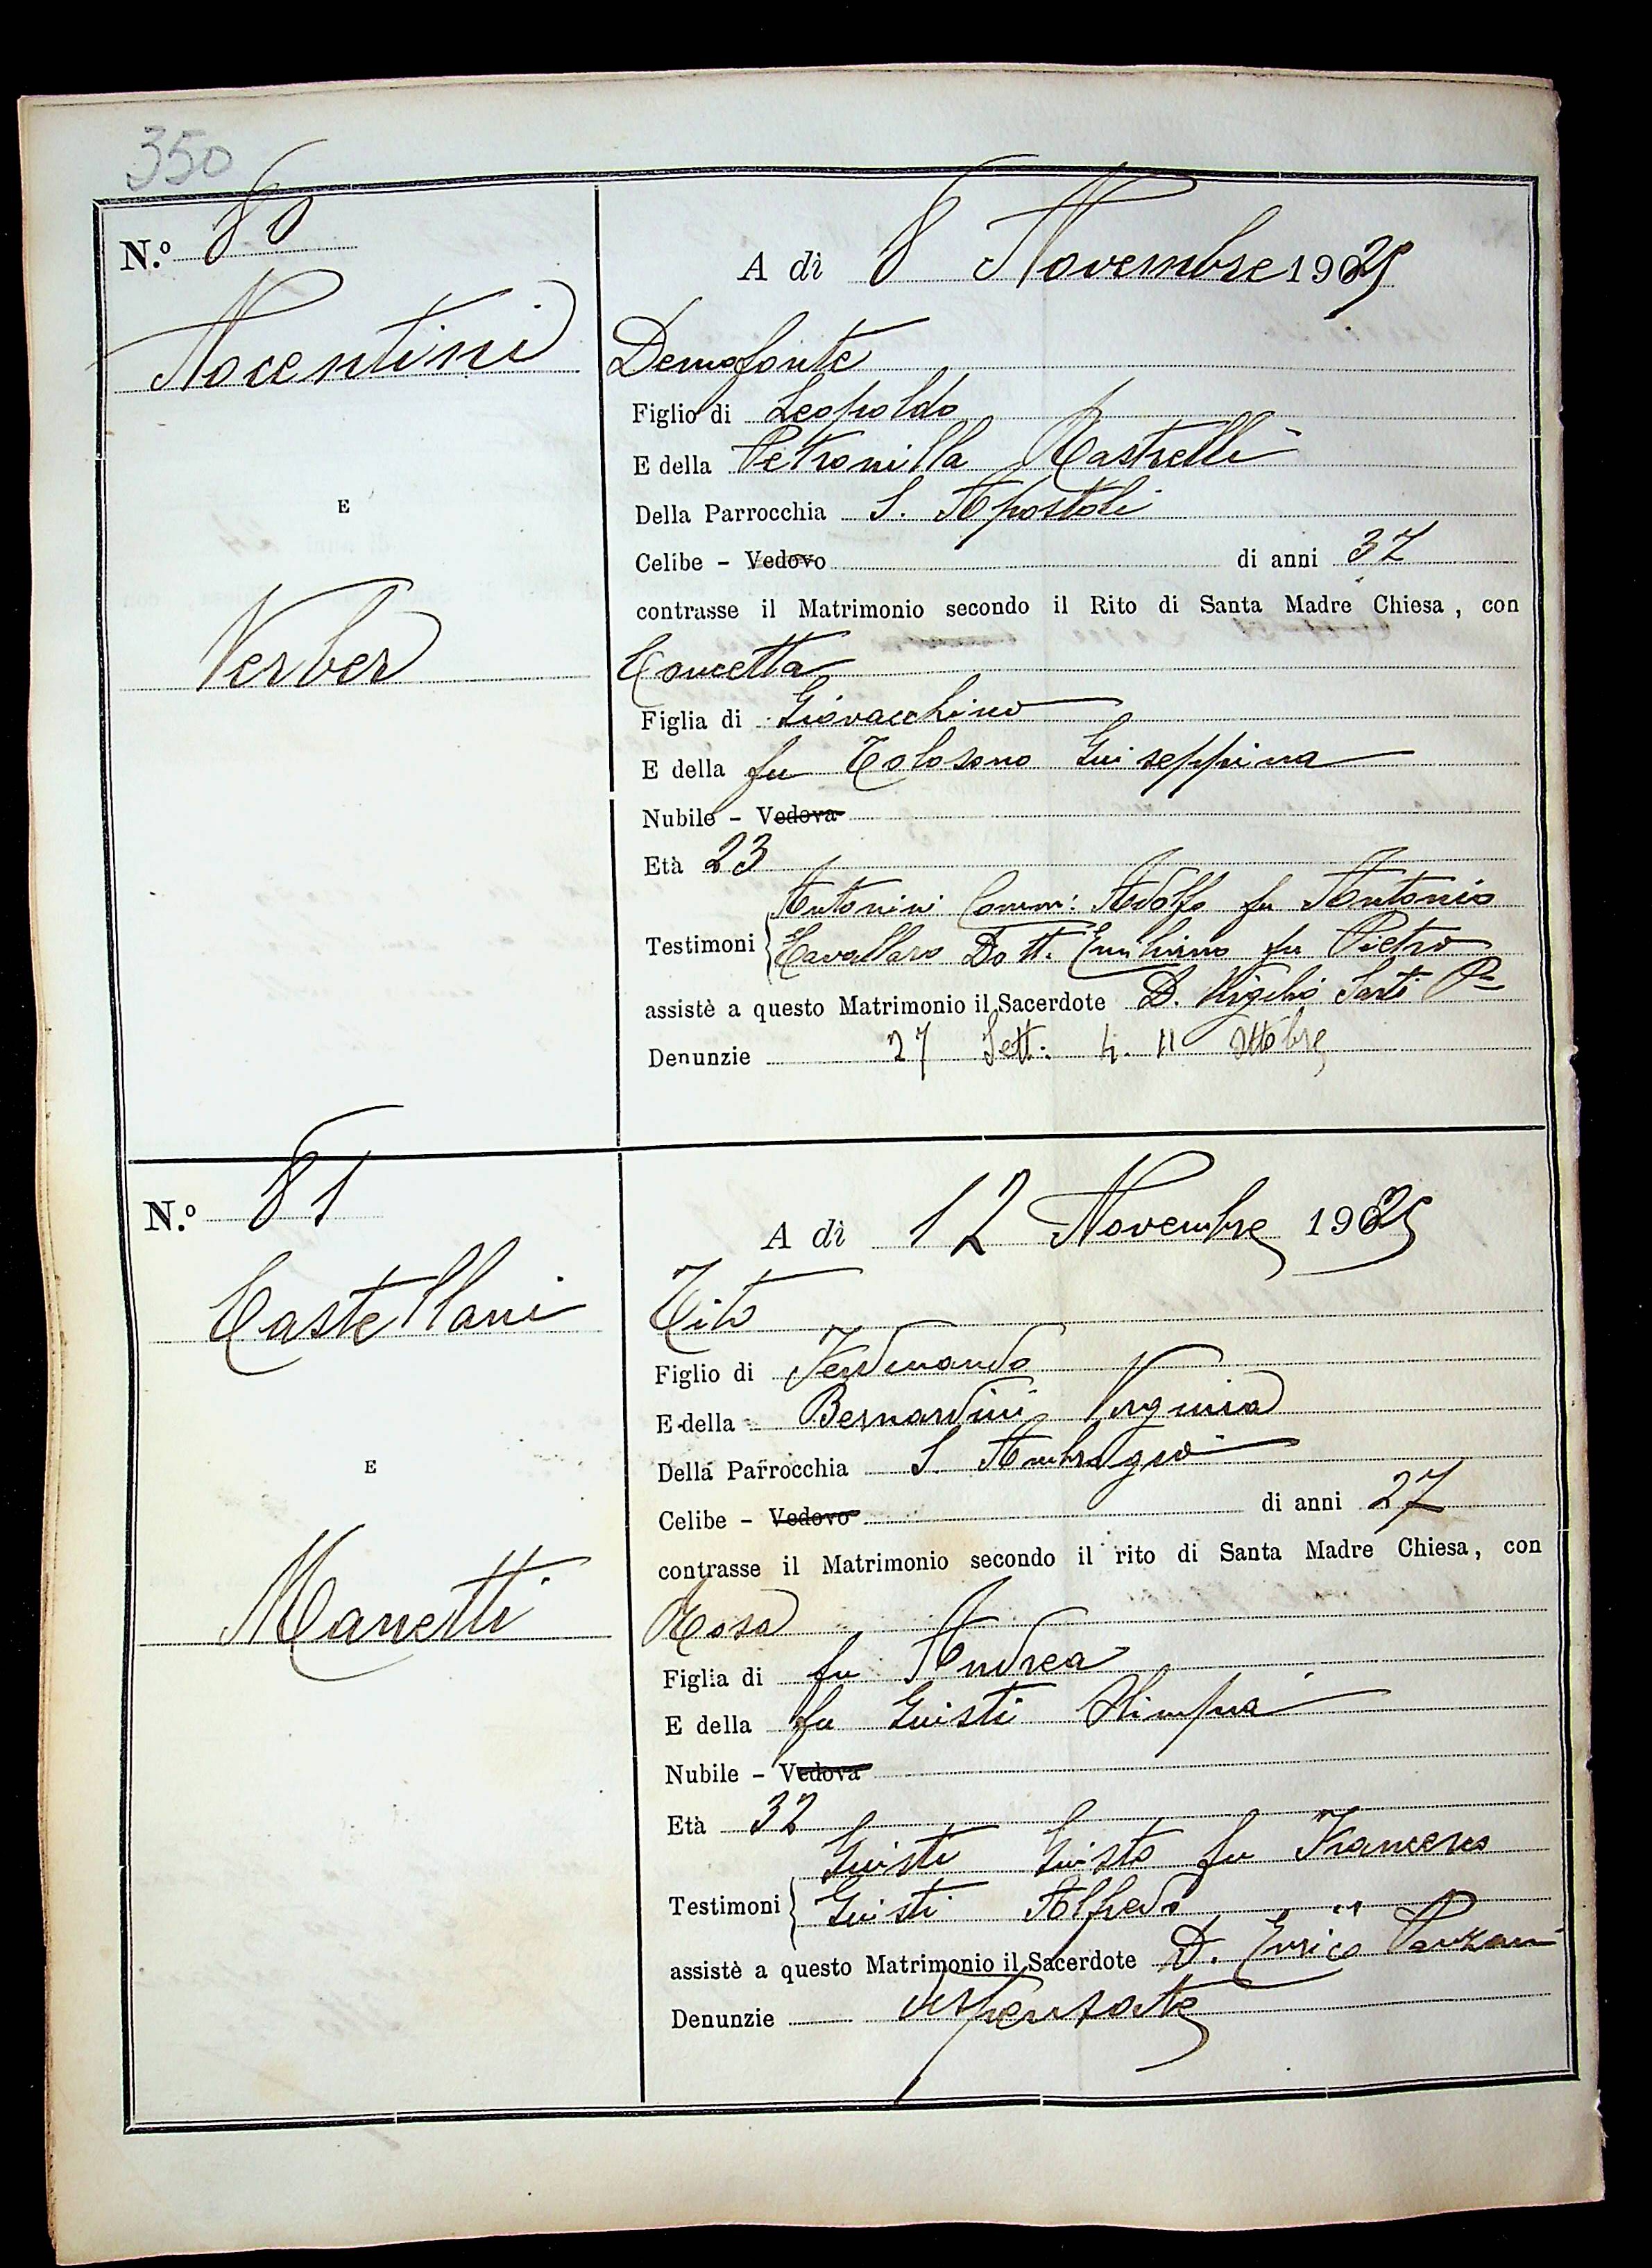 350
N.º 80
A dì 8 Novembre 1925
Nocentini
Demofonte
Figlio di Leopoldo
E della Petronilla Rastrelli
E
Della Parrocchia S. Apostoli
Celibe - Vedovo di anni 37
contrasse il Matrimonio secondo il Rito di Santa Madre Chiesa, con
Verber
Concetta
Figlia di Giovacchino
E della fu Tolosano Giuseppina
Nubile - Vedova
Età 23
Antonini Comm: Adolfo fu Antonio
Testimoni Cavallaro Dott. Emiliano fu Pietro
assistè a questo Matrimonio il Sacerdote D. Virgilio Sarti
Denunzie 27 Sett. 4. 11 Ottobre
N.º 81
A dì 12 Novembre 1925
Castellani
Tito
Figlio di Ferdinando
E della Bernardini Virginia
Della Parrocchia S. Ambrogio
E
Celibe - Vedovo di anni 27
contrasse il Matrimonio secondo il rito di Santa Madre Chiesa, con
Manetti
Rosa
Figlia di fu Andrea
E della fu Giusti Olimpia
Nubile - Vedova
Età 32
Giusti Giusto fu Francesco
Testimoni Giusti Alfredo
assistè a questo Matrimonio il Sacerdote D. Enrico Panzani
Denunzie dispensate